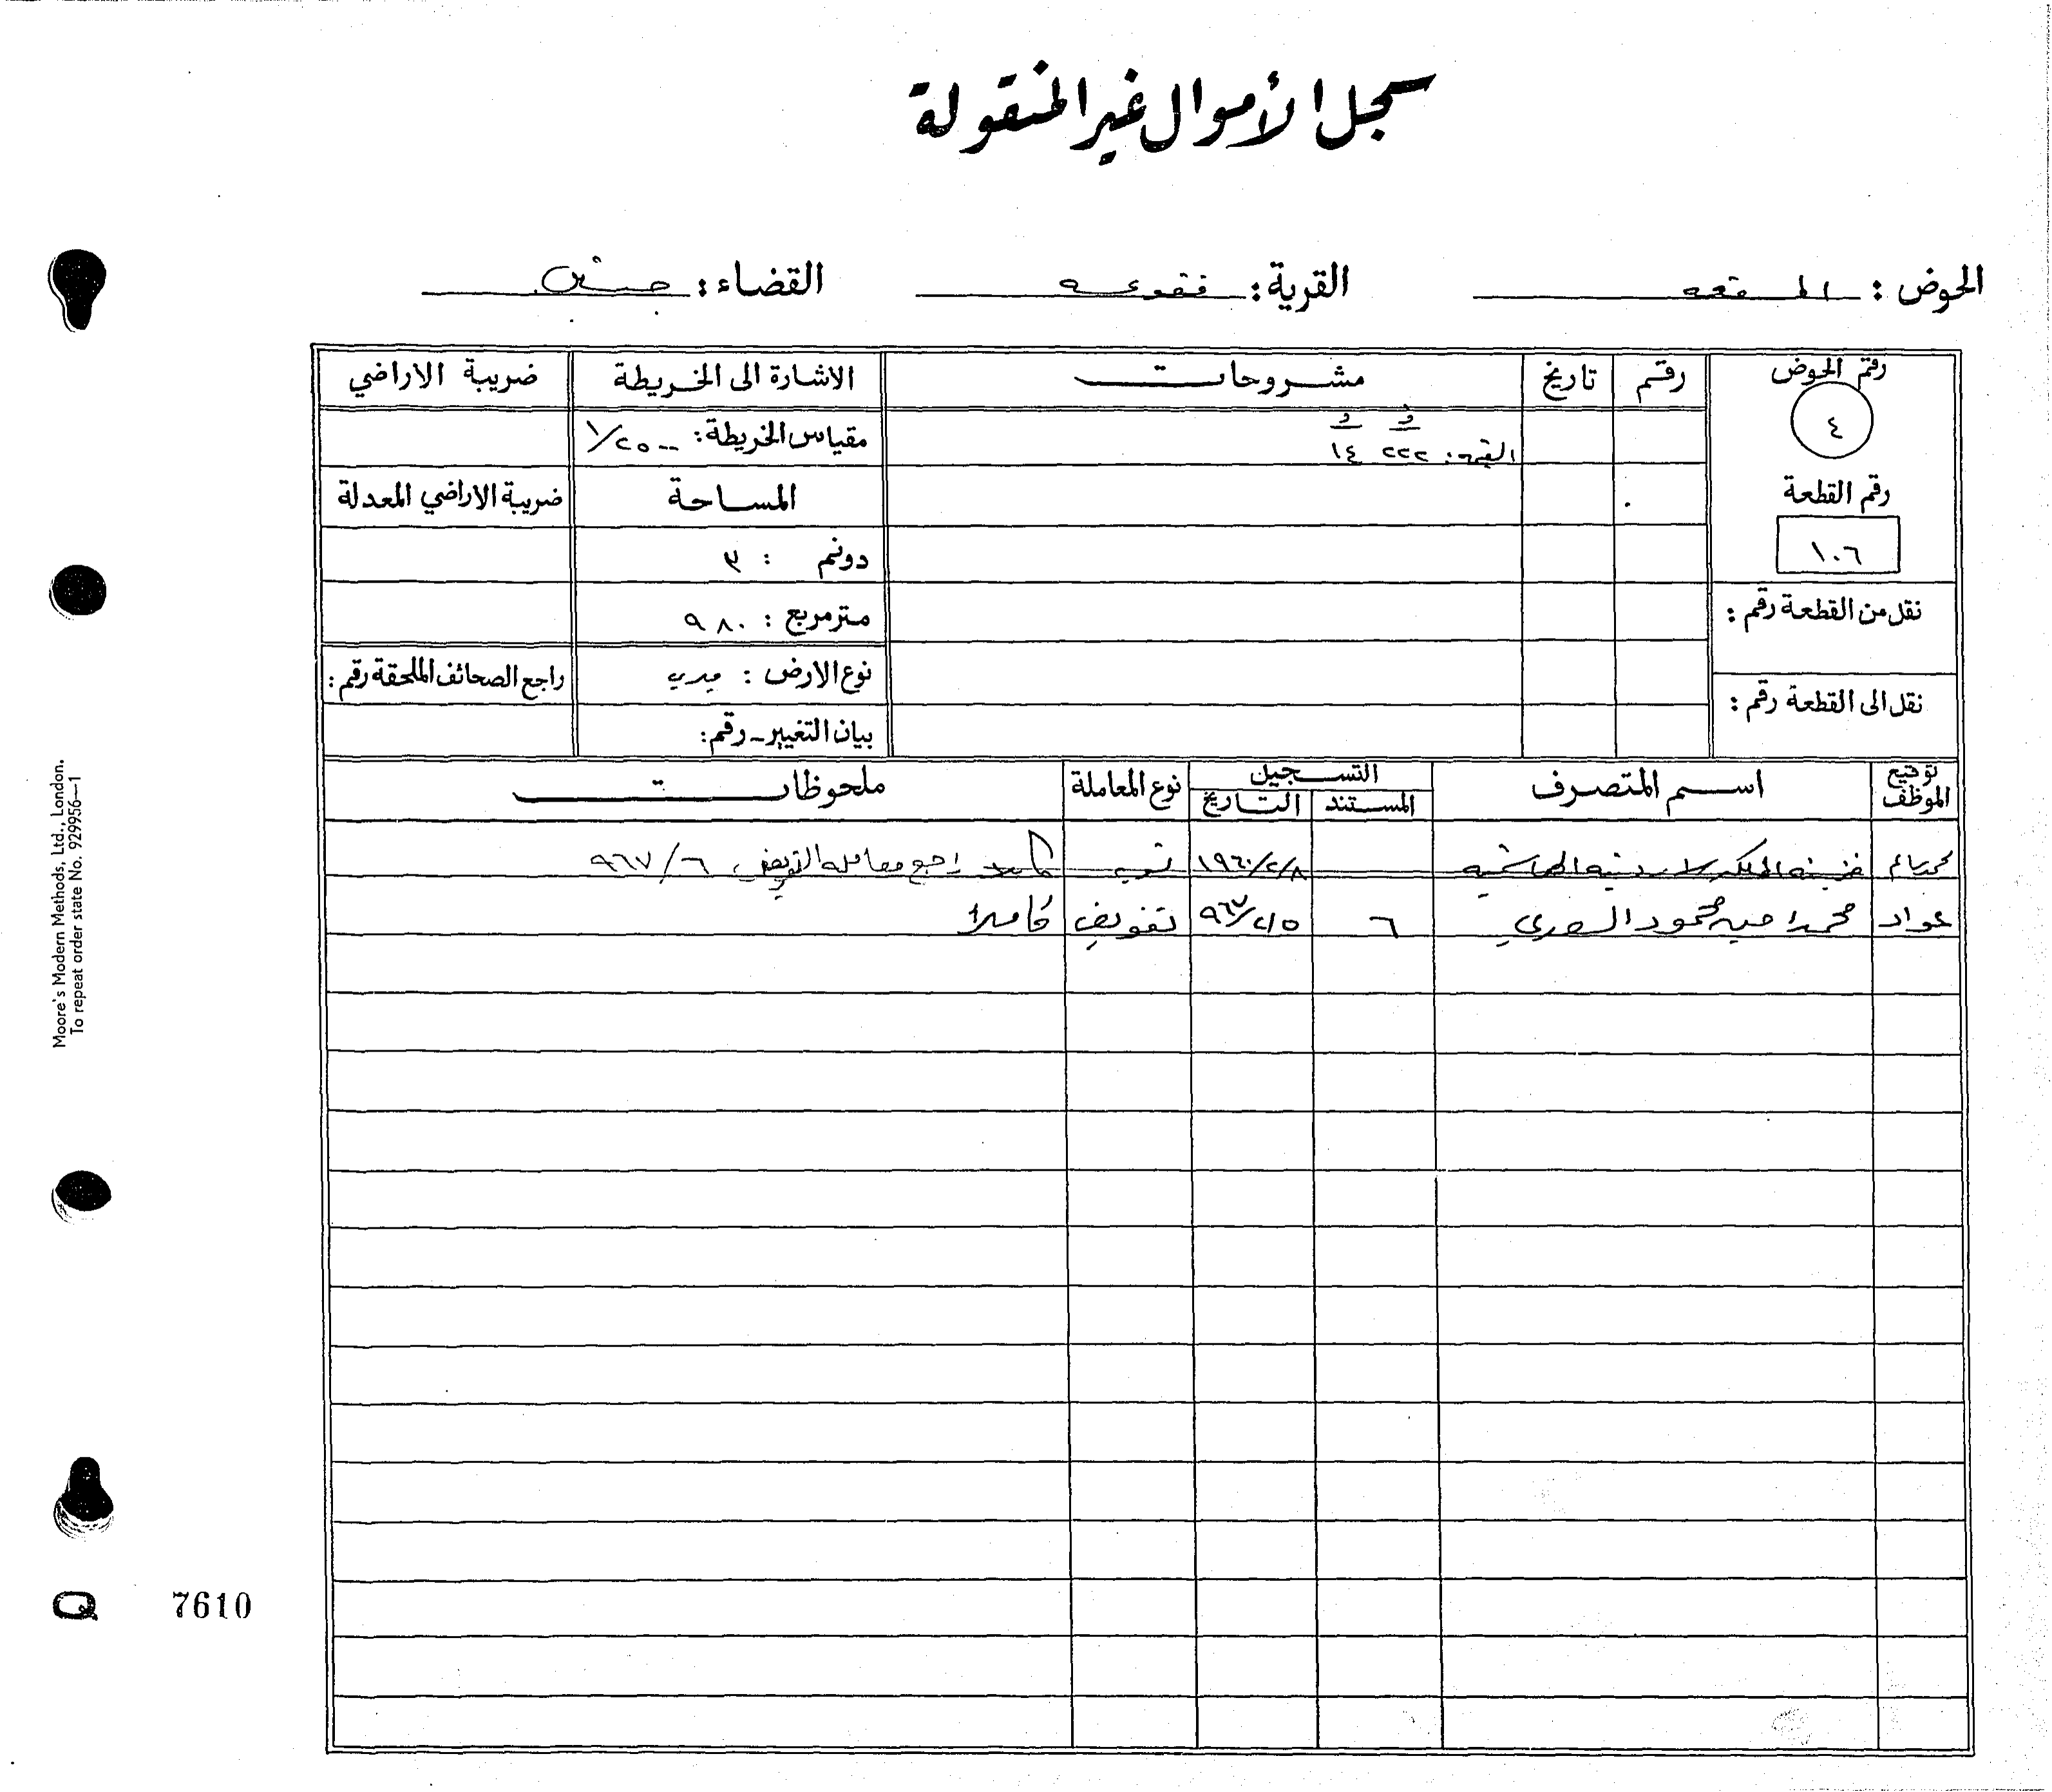 سجل الأموال غير المنقولة
الحوض : القرية : فقوعه القضاء : جنين
رقم الحوض رقم تاريخ مشروحات الاشارة الى الخريطة ضريبة الاراضي
٤
القيمة: ٢٢٢ ١٤
مقياس الخريطة: ١/٢٥٠٠
رقم القطعة
المساحة
ضريبة الاراضي المعدلة
١٠٦
دونم : ٣
نقل من القطعة رقم :
متر مربع : ٩٨٠
نوع الارض : ميري
راجع الصحائف الملحقة رقم :
نقل الى القطعة رقم :
بيان التغيير - رقم:
توقيع الموظف اسم المتصرف التسجيل نوع المعاملة ملحوظات
المستند التاريخ
خزينة المملكة الاردنية الهاشمية ١٩٦٠/٢/٨ تسوية كاملا راجع معاملة التفويض ٩٦٧/٦
عواد محمد محمود ٦ ٩٦٧/٢/٥ تفويض كاملا
Moore's Modern Methods, Ltd., London.
To repeat order state No. 929956—1
Q 7610